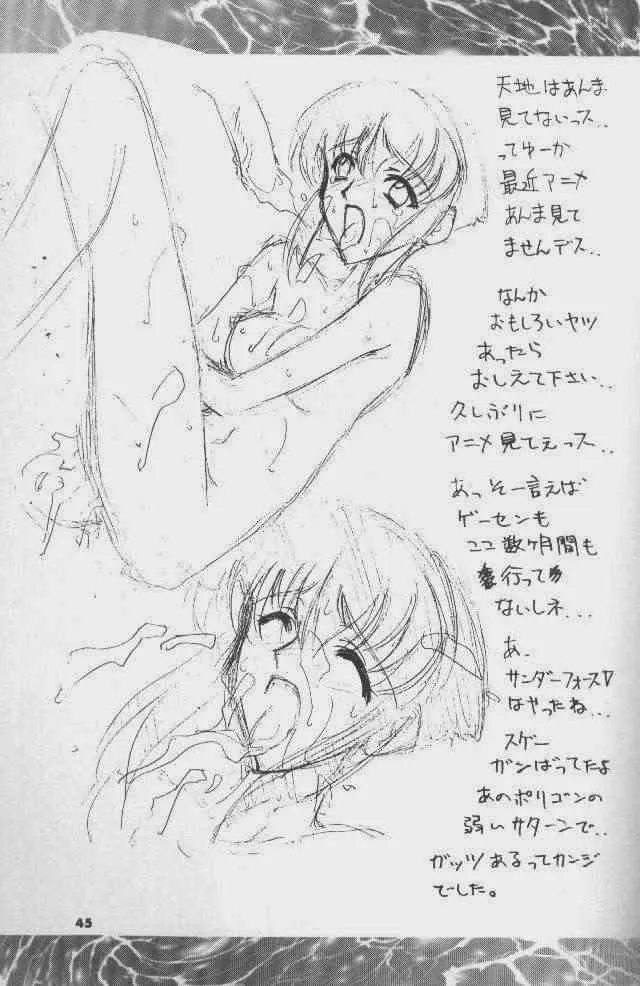 天地はあんま
見てないっス..
ってゆーか
最近アニメ
あんま見て
ませんデス..
なんか
おもしろいヤツ
あったら
おしえて下さい..
久しぶりに
アニメ見てえっス..
あっそー言えば
ゲーセンも
ココ数ヶ月間も
行って
ないしネ...
あ.
サンダーフォースV
はやったね...
スゲー
ガンばってたよ
あのポリゴンの
弱いサターンで..
ガッツあるってカンジ
でーした。
45